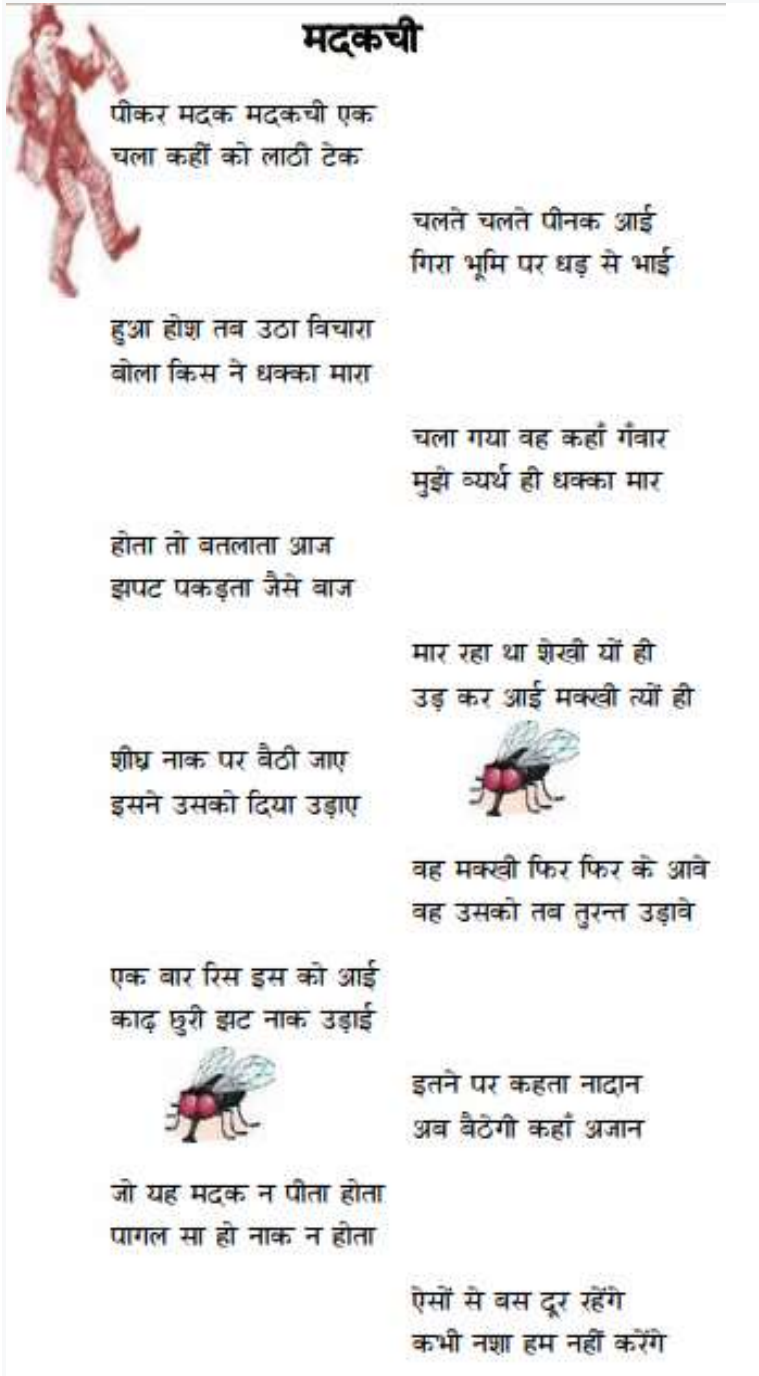 मदकची
पीकर मदक मदकची एक
चला कहीं को लाठी टेक
चलते चलते पीनक आई
गिरा भूमि पर धड़ से भाई
हुआ होश तब उठा विचारा
बोला किस ने धक्का मारा
चला गया वह कहाँ गँवार
मुझे व्यर्थ ही धक्का मार
होता तो बतलाता आज
झपट पकड़ता जैसे बाज
मार रहा था शेखी यों ही
उड़ कर आई मक्खी त्यों ही
शीघ्र नाक पर बैठी जाए
इसने उसको दिया उड़ाए
वह मक्खी फिर फिर के आवे
वह उसको तब तुरन्त उड़ावे
एक बार रिस इस को आई
काढ़ छुरी झट नाक उड़ाई
इतने पर कहता नादान
अब बैठेगी कहाँ अजान
जो यह मदक न पीता होता
पागल सा हो नाक न होता
ऐसों से बस दूर रहेंगे
कभी नशा हम नहीं करेंगे